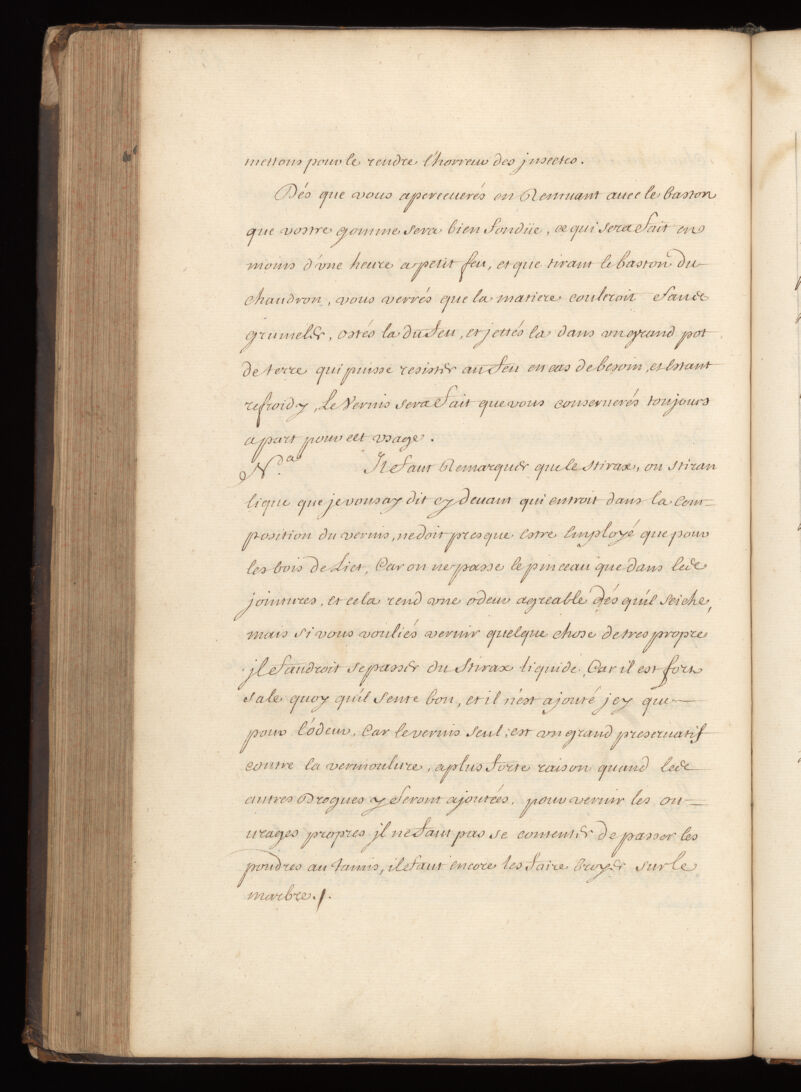 mettons pour le rendre l'horreur des jnsectes.
Dés que vous apercevrés en Remuant avec le baston
que vostre gomme sera bien fondüe, ce qui sera fait en
moins d'vne heure a petit feu, et que tirant le baston du
chaudron, vous verrés que la matiere couleroit sans
grumeler, ostés la du feu, et jettés la dans vn grand pot
de terre qui puisse resister au feu en cas de besoin, et Estant
refroidy, Le Vernis sera fait que vous conserverés toujours
a part pour cet vsage.
N.da Il faut Remarquer que le stirax, ou stirax
liquie que je vous ay dit cy devant qui entroit dans la Com=
position du vernis, ne doit presque Estre Employé que pour
les bois de Lict, Car on ne passe le pinceau que dans les
jointures, et cela rend vne odeur agreable dés qu'il seiche,
mais si vous vouliés vernir quelque chose de tres propre
jl faudroit se passer du Stirax liquide, Car il est fort
sale quoy qu'il sente bon, et il n'est ajouté jcy que
pour l'ódeur, Car le vernis seul, est vn grand preservatif
contre la vermoulure, a plus forte raison quand les
autres Drogues y seront ajoutées. pour vernir les ou=
urages propres jl ne faut pas se contenter de passer les
poudres au tamis, il faut encore les faire broyer sur le
marbre./.